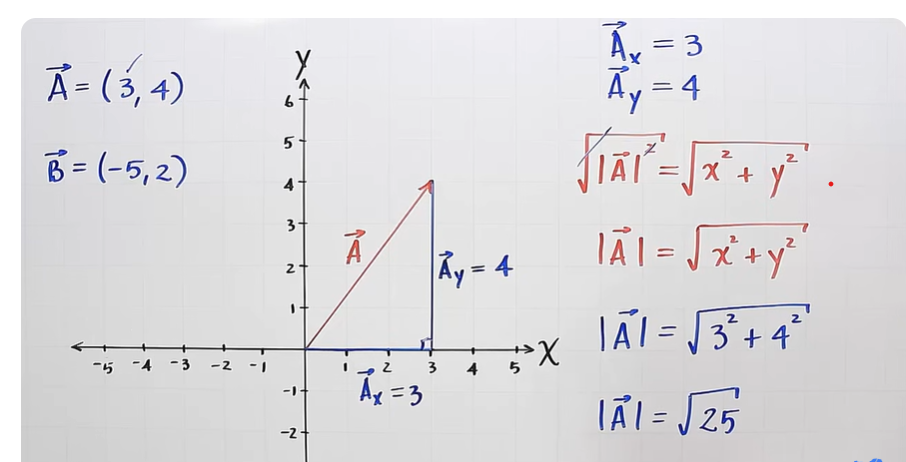 A⃗ = (3, 4)
B⃗ = (-5, 2)
y
6
5
4
3
2
1
-1
-2
-5 -4 -3 -2 -1 1 2 3 4 5 X
A⃗
A⃗y = 4
A⃗x = 3
A⃗x = 3
A⃗y = 4
√|A⃗|² = √x² + y²
|A⃗| = √x² + y²
|A⃗| = √3² + 4²
|A⃗| = √25